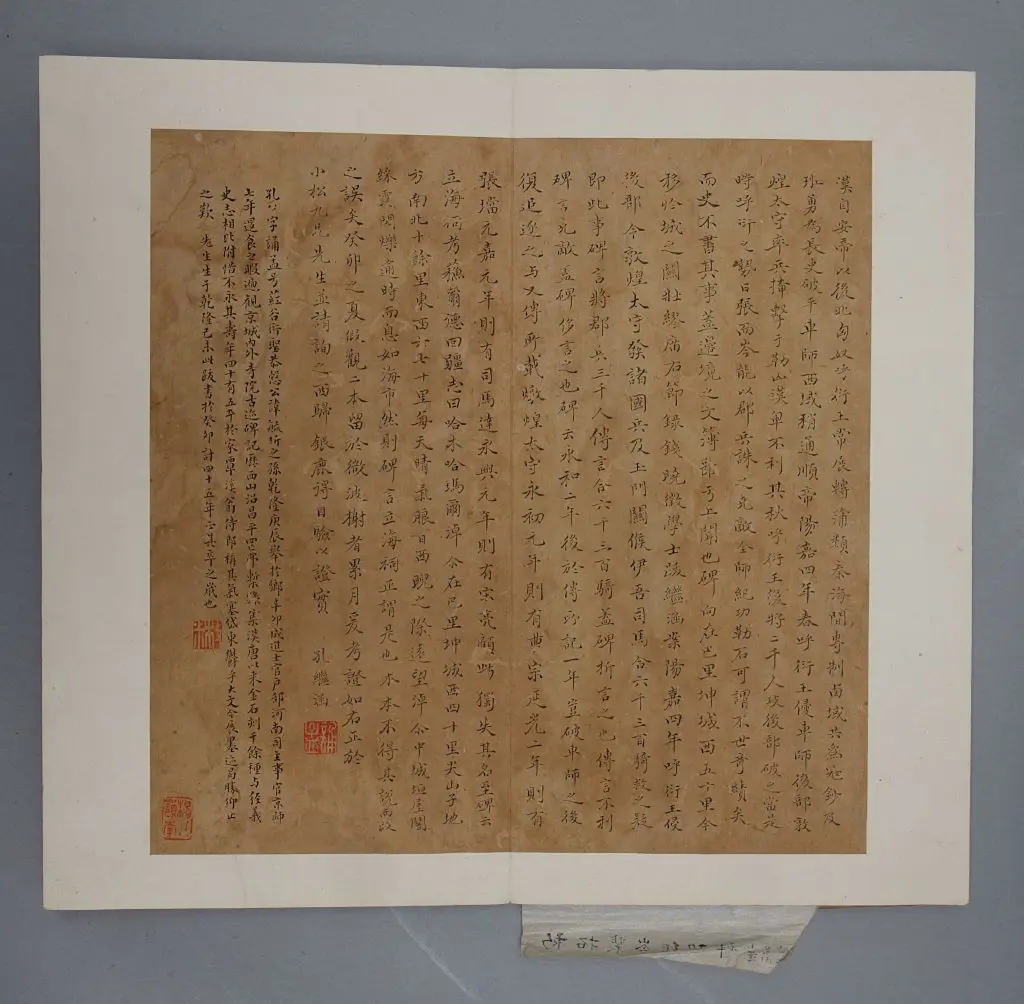 漢自安帝以後北匈奴呼衍王常展轉蒲類秦海間專制西域共為寇鈔及
班勇為長史破平車師西域稍通順帝陽嘉四年春呼衍王侵車師後部敦
煌太守率兵掩擊于勒山漢軍不利其秋呼衍王復將二千人攻後部破之當是
時呼衍之勢日張而岑能以郡兵誅之克敵全師紀功勒石可謂不世奇績矣
而史不書其事蓋邊境之文簿鄣于上聞也碑向在巴里坤城西五十里今
移於城之關壯繆廟右節錄錢曉徵學士跋繼涵案陽嘉四年呼衍王侵
後部令敦煌太守發諸國兵及玉門關候伊吾司馬合六千三百騎救之疑
即此事碑言將郡兵三千人傳言合六千三百騎蓋碑析言之也傳言不利
碑言克敵蓋碑侈言之也碑云永和二年後於傳所記一年豈破車師之後
復追逐之與又傳所載燉煌太守永初元年則有曹宗延光二年則有
張璫元嘉元年則有司馬達永興元年則有宋亮顧此獨失其名至碑云
立海祠考蘇爾德回疆志曰哈木哈瑪爾淖今在巴里坤城西四十里尖山子地
方南北十餘里東西六七十里每天晴氣朖日西睨之際遠望淖介中城垣屋閣
綠雲閃爍逾時而息如海市然則碑言立海祠正謂是也木本不得其說而改
之誤矣癸卯之夏假觀二本留於微波榭者累月爰考證如右正於
小松九兄先生並請詢之西歸銀鹿諤目驗以證實 孔繼涵
孔公字誧孟号葒谷衍聖恭慤公諱毓圻之孫乾隆庚辰舉於鄉辛卯成進士官戶部河南司主事官京師
七年退食之暇遍觀京城內外寺院古迹碑記歷西山沿昌平四帶槧集漢唐以來金石刻千餘種与經義
史志相比附惜不永其壽年四十有五卒於家覃溪翁侍郎稱其氣塞岱東鬱乎大文今展墨迹曷勝仰止
之歎 先生生于乾隆己未此跋書於癸卯計四十五年正其卒之歲也